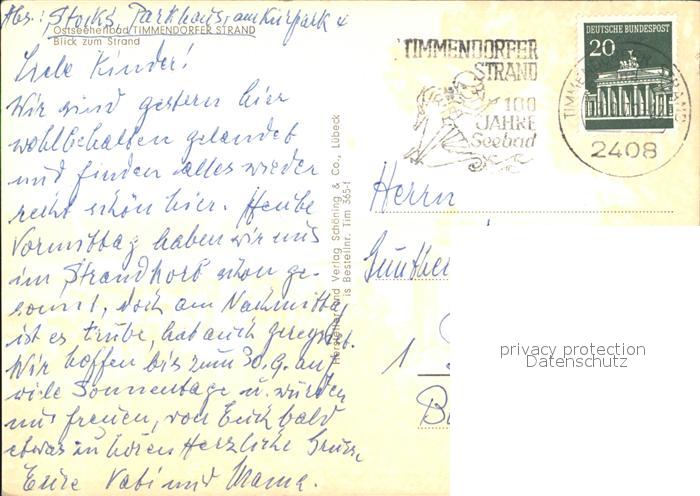 Abs.: Storks, Parkhaus, am Kurpark 4
Ostseeheilbad TIMMENDORFER STRAND
Blick zum Strand
Liebe Kinder!
Wir sind gestern hier
wohlbehalten gelandet
und finden alles wieder
recht schön hier. Heute
Vormittag haben wir uns
im Strandkorb schon ge-
sonnt, doch am Nachmittag
ist es trübe, hat auch geregnet.
Wir hoffen bis zum 30.9. auf
viele Sonnentage u. würden
uns freuen, von Euch bald
etwas zu hören Herzliche Grüsse
Eure Vati und Mama.
Hersteller und Verlag Schöning & Co., Lübeck
is Bestellnr. Tim 365-1
TIMMENDORFER
STRAND
100
JAHRE
Seebad
DEUTSCHE BUNDESPOST
20
TIMMENDORFER STRAND
2408
Herrn
Günther
1
privacy protection
Datenschutz